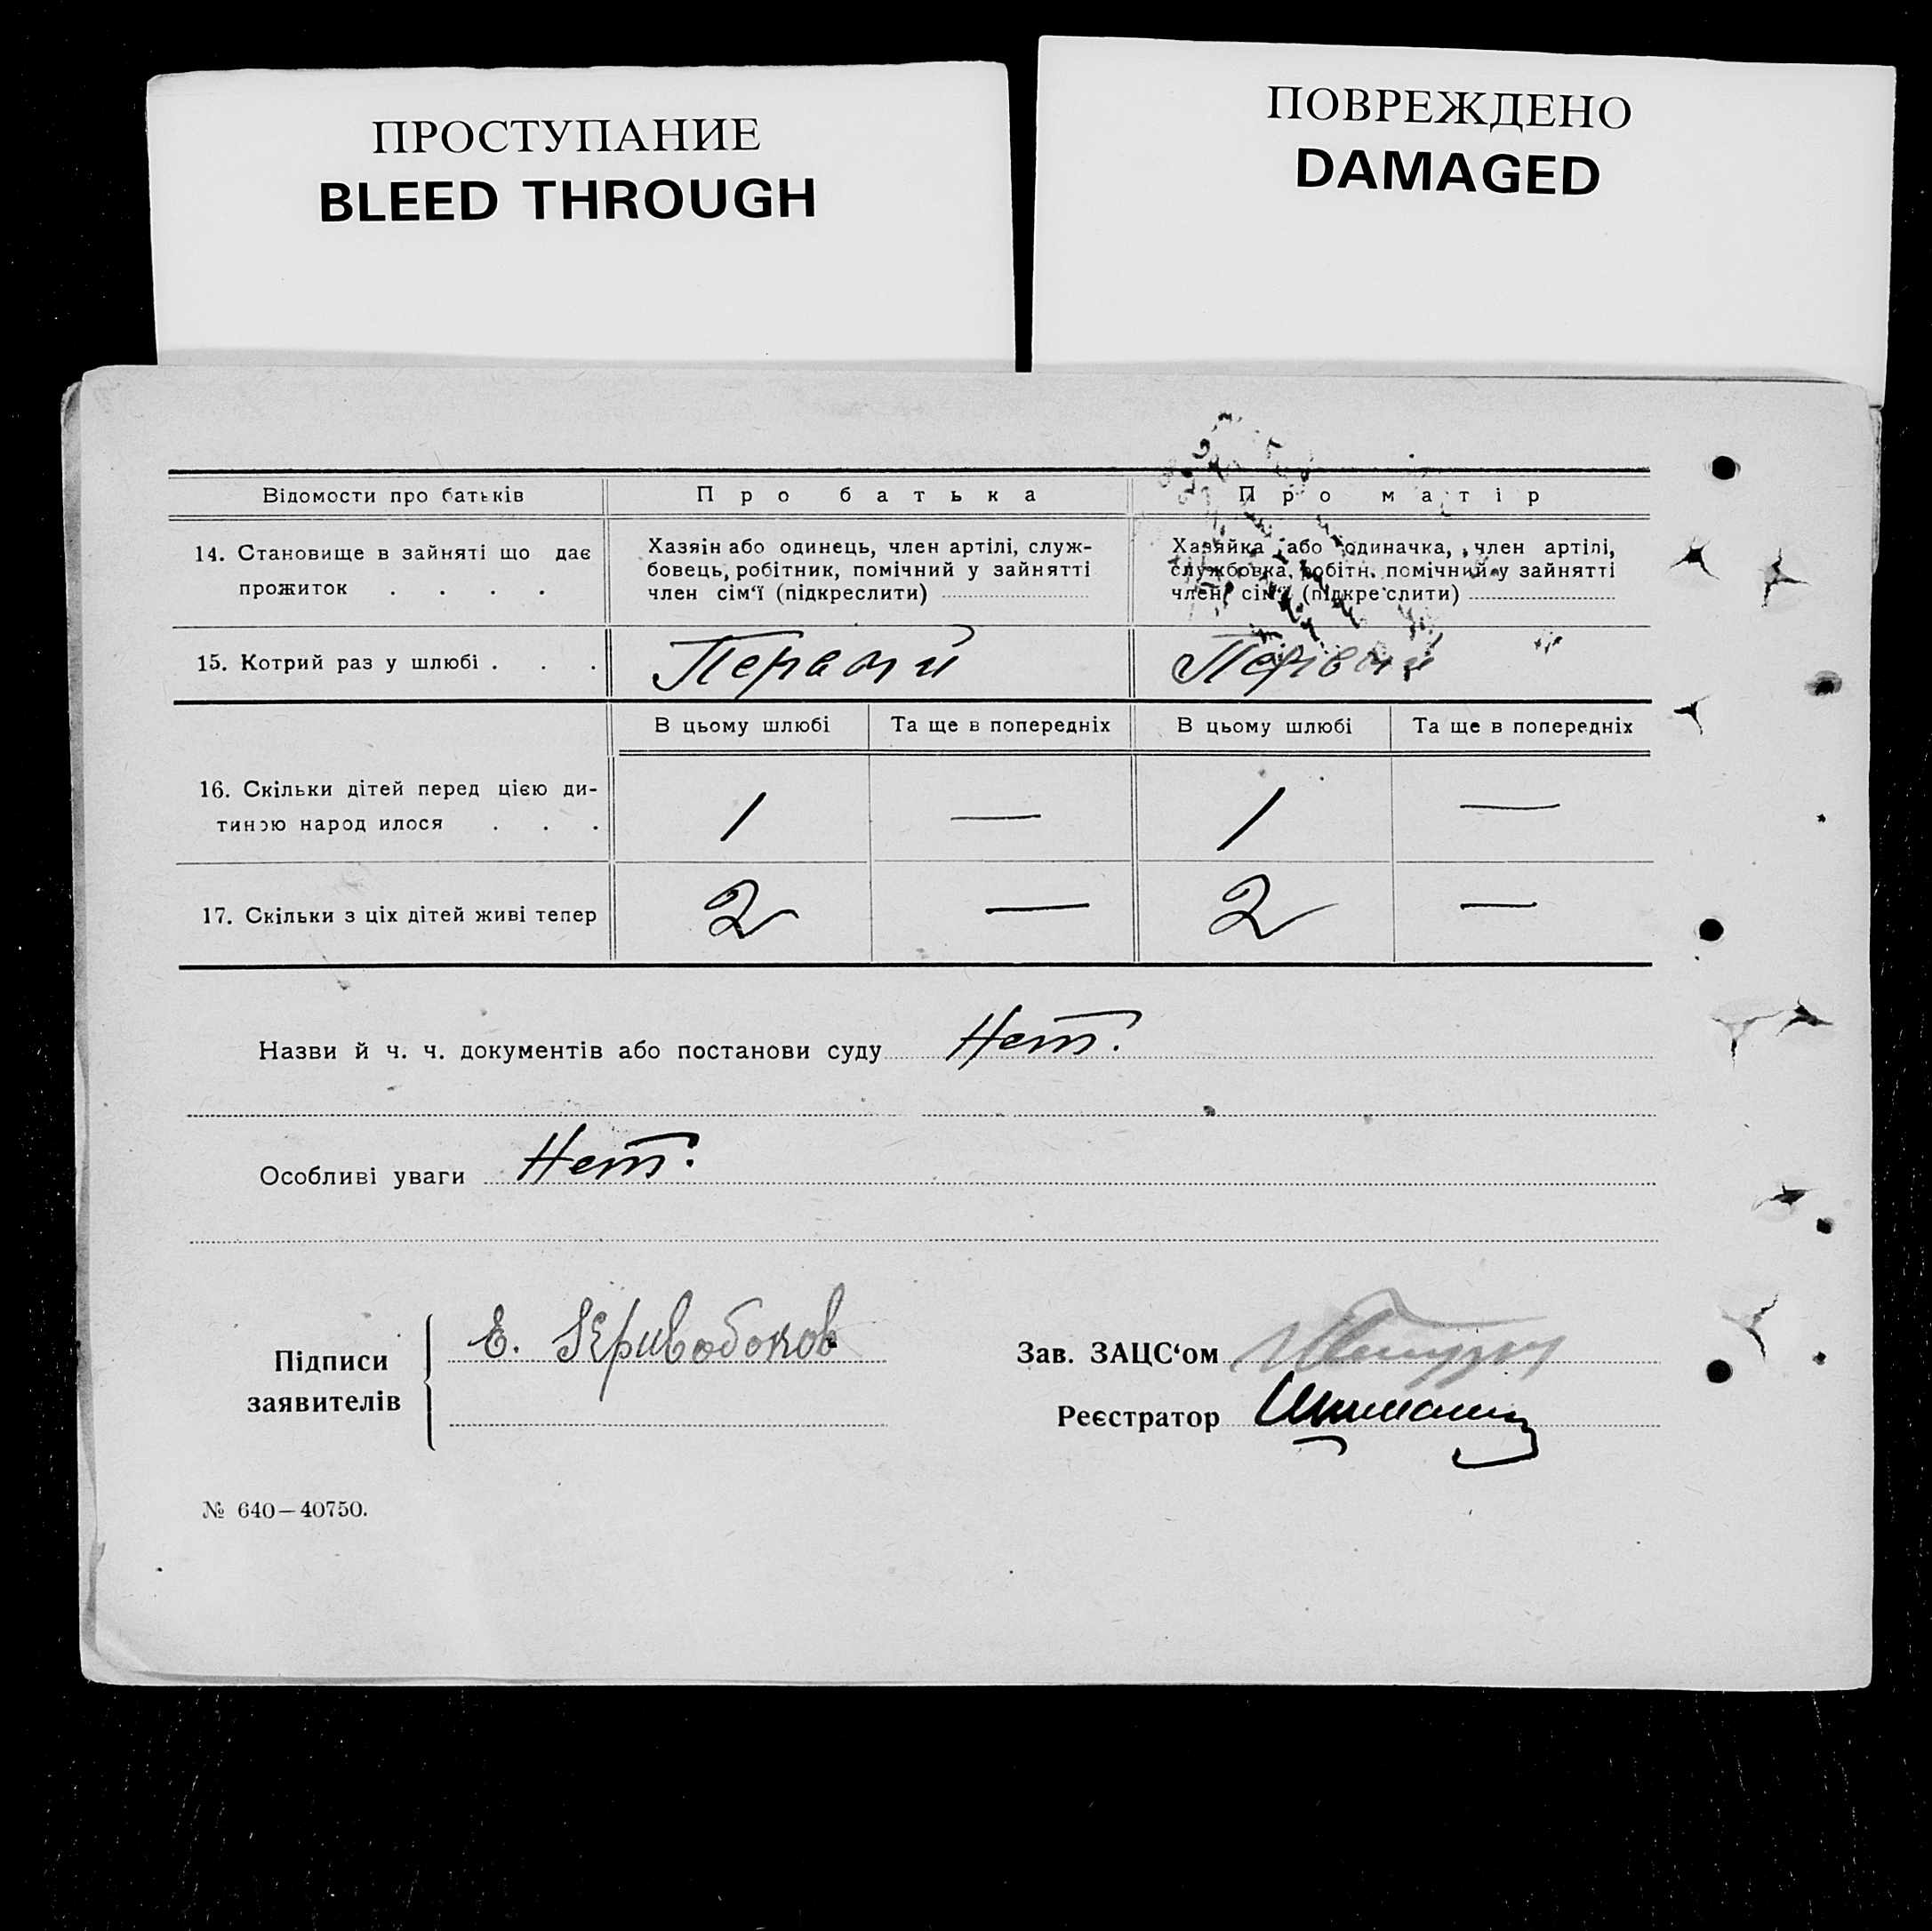 ПРОСТУПАНИЕ
BLEED THROUGH
ПОВРЕЖДЕНО
DAMAGED
Відомости про батьків
Про батька
Про матір
14. Становище в зайняті що дає
прожиток . . . .
Хазяїн або одинець, член артілі, служ-
бовець, робітник, помічний у зайнятті
член сім‘ї (підкреслити)
Хазяйка або одиначка, член артілі,
службовка, робітн. помічний у зайнятті
член сім‘ї (підкреслити)
15. Котрий раз у шлюбі . . .
Первый
Первый
В цьому шлюбі
Та ще в попередніх
В цьому шлюбі
Та ще в попередніх
16. Скільки дітей перед цією ди-
тиною народ илося . . .
1
—
1
—
17. Скільки з ціх дітей живі тепер
2
—
2
—
Назви й ч. ч. документів або постанови суду Нет.
Особливі уваги Нет.
Підписи
заявителів
Е. Кривобоков
Зав. ЗАЦС‘ом
Реєстратор
№ 640—40750.